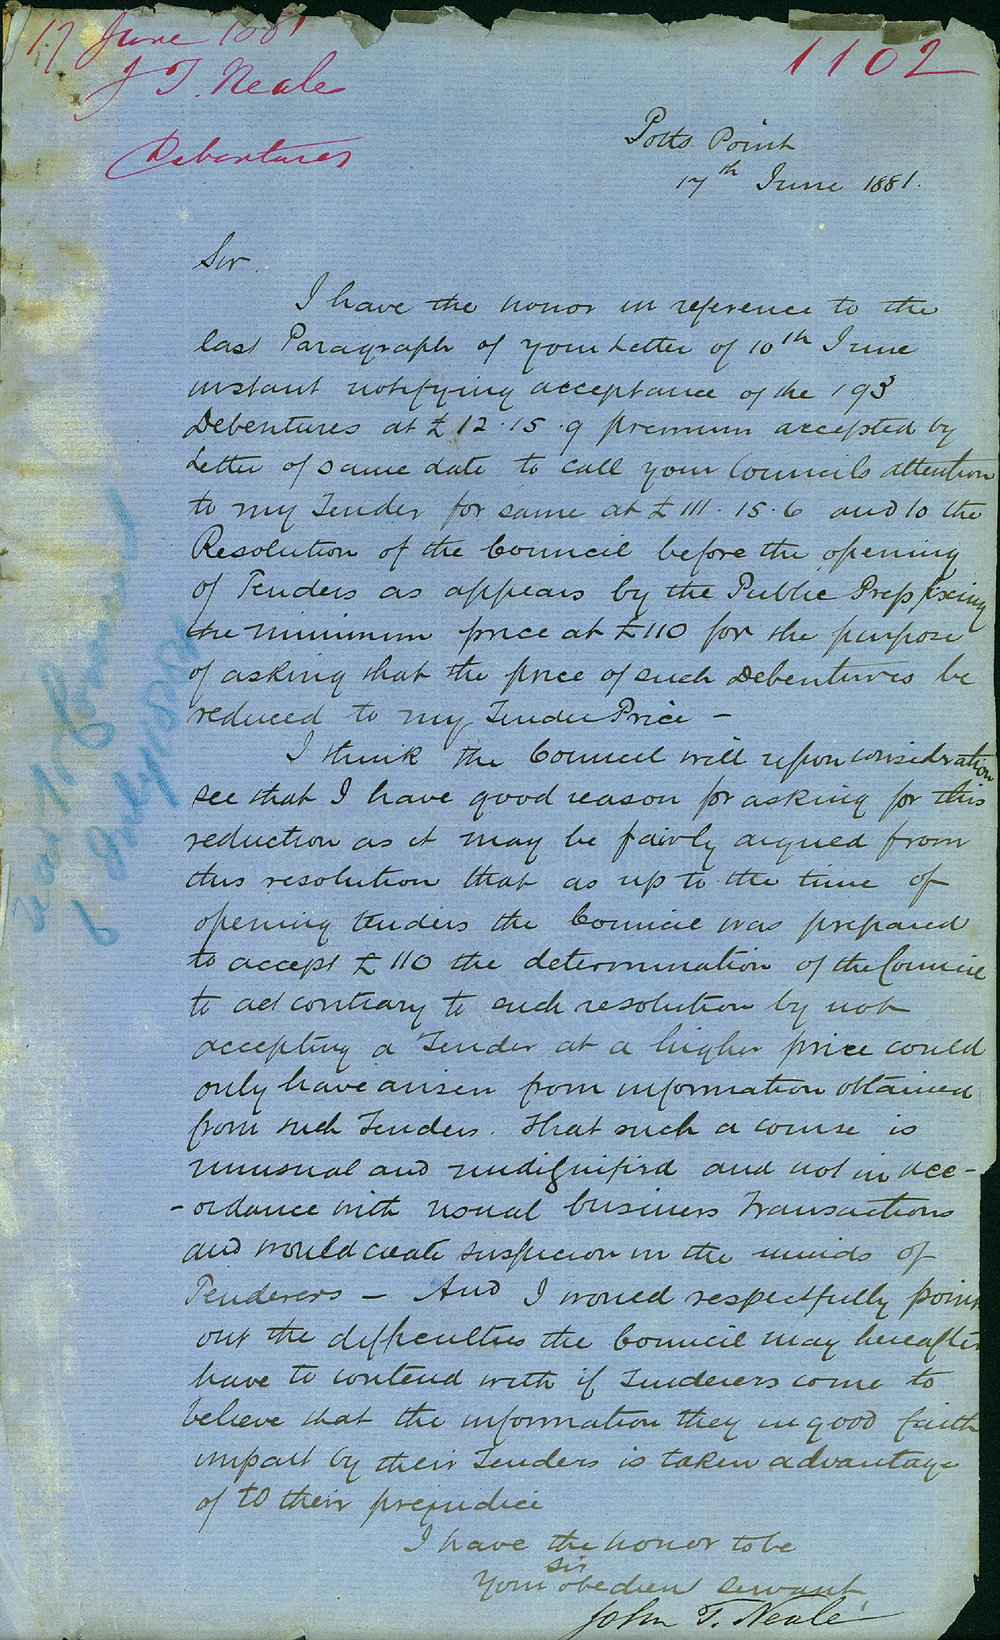 17 June 1881
J T. Neale
Debentures
1102
Potts Point
17th June 1881.
Sir.
I have the honor in reference to the
last Paragraph of your Letter of 10th June
instant notifying acceptance of the 193
Debentures at £12.15.9 premium accepted by
Letter of same date to call your Councils attention
to my Tender for same at £111.15.6 and to the
Resolution of the Council before the opening
of Tenders as appears by the Public Press fixing
the minimum price at £110 for the purpose
of asking that the price of such Debentures be
reduced to my Tender Price –
I think the Council will upon consideration
see that I have good reason for asking for this
reduction as it may be fairly argued from
this resolution that as up to the time of
opening tenders the Council was prepared
to accept £110 the determination of the Council
to act contrary to such resolution by not
accepting a Tender at a higher price could
only have arisen from information obtained
from such Tenders. That such a course is
unusual and undignified and not in acc-
-ordance with usual business Transactions
and would create suspicion in the minds of
Tenderers – And I would respectfully point
out the difficulties the Council may hereafter
have to contend with if Tenderers come to
believe that the information they in good faith
impart by their Tenders is taken advantage
of to their prejudice
I have the honor to be
Sir
Your obedient servant
John T. Neale
Read to Council
6 July 1881